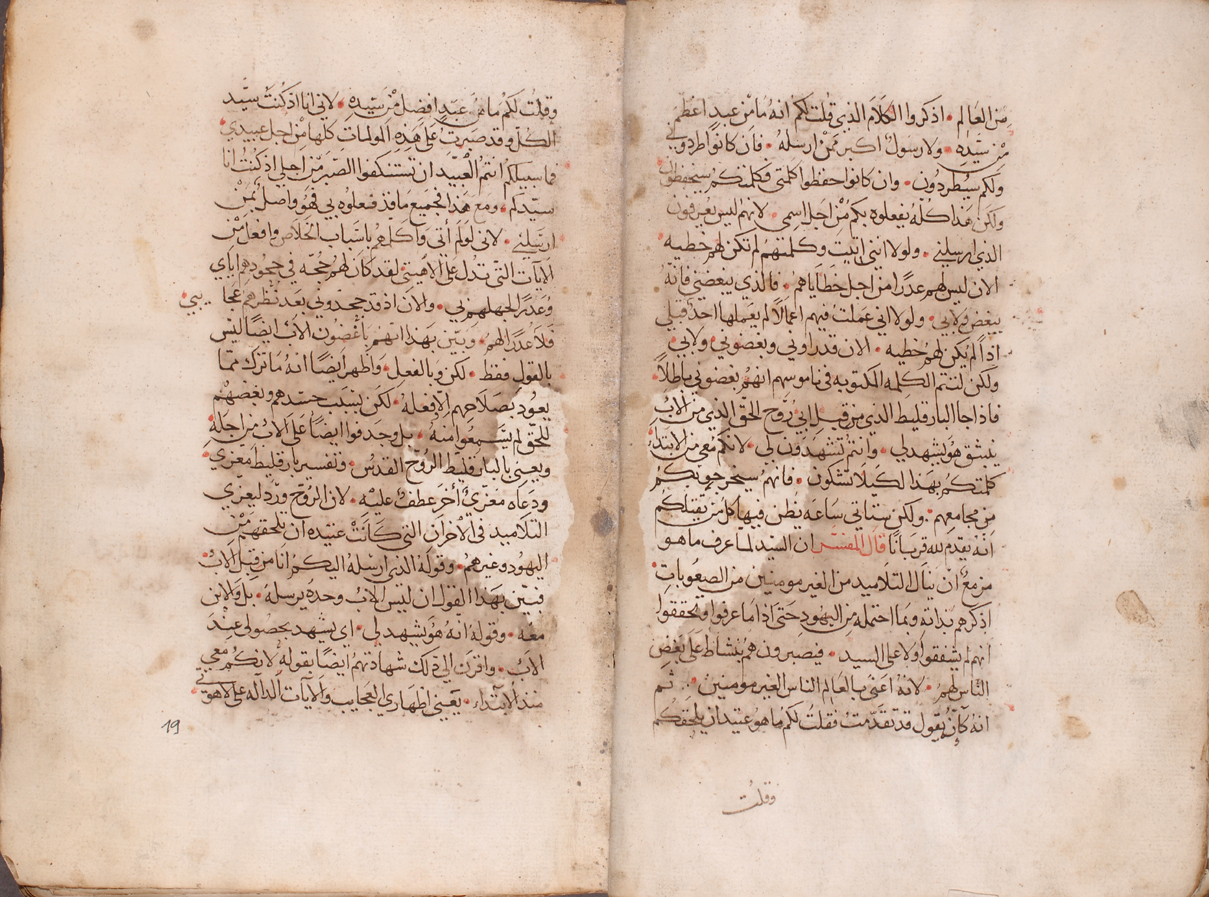 من العالم • اذكروا الكلام الذي قلت لكم انه ما من عبد اعظم
من سيّده • ولا رسول اكبر ممن ارسله • فان كانوا طردوني
ولكم سيطردون • وان كانوا حفظوا كلمتي فكلمتكم سيحفظون
ولكن هذا كله يفعلوه بكم من اجل اسمي • لانهم ليس يعرفون
الذي ارسلني • ولولا انني اتيت وكلمتهم لم تكن لهم خطيه
الان ليس لهم عذرًا من اجل خطاياهم • فالذي يبغضني فانه
يبغض ولابي • ولولا اني عملت فيهم اعمالا لم يعملها احد قبلي
اذًا لم يكن لهم خطيه • الان قد راوني وبغضوني • ولابي •
ولكن لتتم الكلمه المكتوبه في ناموسهم انهم بغضوني باطلًا •
فاذا جا البارقليط الذي من قبل ابي روح الحق الذي من الاب
ينبثق هو يشهد لي • وانتم تشهدون لي • لانكم معي من الابتدا •
كلمتكم بهذا لكيلا تشكون • فانهم سيخرجونكم
من مجامعهم • ولكن ستاتي ساعه يظن فيها كل من يقتلكم
انه يقدم لله قربانًا قال المفسّر ان السيد لما عرف ما هو
مزمع ان ينال التلاميد من الغير مومنين من الصعوبات
اذكرهم بذاته وبما احتمله من اليهود حتى اذا ما عرفوا وتحققوا
انهم لم يشفقوا ولا على السيد • فيصبرون هم بنشاط على بغض
الناس لهم • لانه اعني بالعالم الناس الغير مومنين • ثم
انه كان يقول قد تقدّمت فقلت لكم ما هو عتيد ان يلحقكم
وقلت
وقلت لكم ما من عبد افضل من سيّده • لاني انا اذ كنت سيّد
الكل وقد صبرت على هذه المولمات كلها من اجل عبيدي •
فما سبيلكم انتم العبيد ان تستنكفوا الصبر من اجلي اذ كنت انا
سيّدكم • ومع هذا فجميع ما قد فعلوه بي فهو واصل لمن
ارسلني • لاني لو لم اتي واكلمهم باسباب الخلاص وافعل من
الايات التي تدل على الاهيتي • لقد كان لهم حجه في جحودهم اياي
وعذر لجهلهم بي • والان اذ قد جحدوني بعد نظرهم عجا
يبي •
فلا عذر لهم • وبيّن بهذا انهم باغضون الاب ايضًا ليس
بالقول فقط • لكن وبالفعل • واظهر ايضًا انه ما ترك مما
يعود بصلاحهم الا فعله • لكن بسبب حسدهم وبغضهم
للحق لم يسمعوا منه • بل وجدفوا ايضًا على الاب من اجله •
ويعني بالبارقليط الروح القدس • وتفسير بارقليط معزي •
ودعاه معزي اخر عطف عليه • لان الروح ورد ليعزي
التلاميد في الاحزان التي كانت عتيده ان تلحقهم من
اليهود وغيرهم • وقوله الذي ارسله اليكم انا من قبل الاب •
فبيّن بهذا القول ان ليس الاب وحده يرسله • بل والابن
معه • وقوله انه هو يشهد لي • اي يشهد بحصولي عند
الاب • واقرن الى ذلك شهادتهم ايضًا بقوله لانكم معي
منذ الابتدا • يعني اظهاري العجايب والايات الداله على لاهوتي •
19